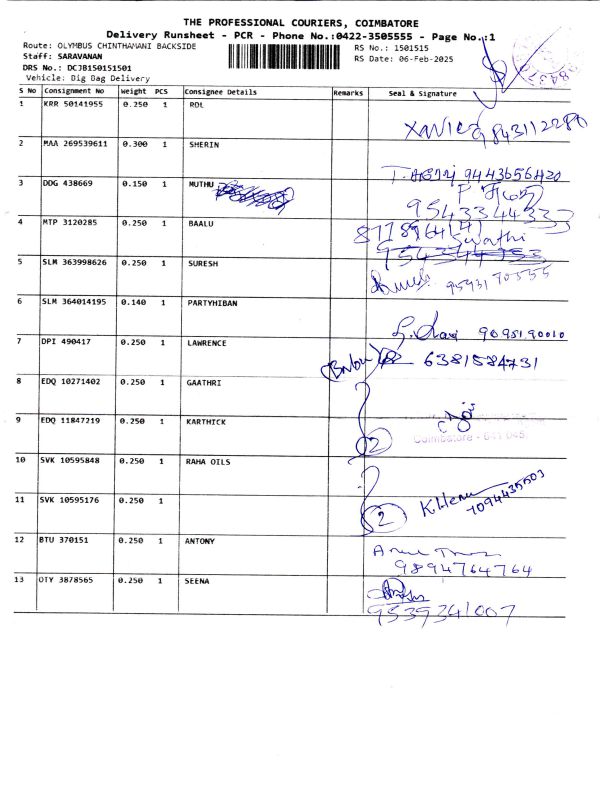 THE PROFESSIONAL COURIERS, COIMBATORE
Delivery Runsheet - PCR - Phone No.:0422-3505555 - Page No.:1
Route: OLYMBUS CHINTHAMANI BACKSIDE
Staff: SARAVANAN
DRS No.: DCJB150151501
Vehicle: Big Bag Delivery
RS No.: 1501515
RS Date: 06-Feb-2025
S No Consignment No Weight PCS Consignee Details Remarks Seal & Signature
1 KRR 50141955 0.250 1 RDL
2 MAA 269539611 0.300 1 SHERIN
3 DDG 438669 0.150 1 MUTHU
9443656420
4 MTP 3120285 0.250 1 BAALU
Swathi
5 SLM 363998626 0.250 1 SURESH
6 SLM 364014195 0.140 1 PARTYHIBAN
7 DPI 490417 0.250 1 LAWRENCE
(Babu) 6381584731
8 EDQ 10271402 0.250 1 GAATHRI
9 EDQ 11847219 0.250 1 KARTHICK
2
Coimbatore - 641 045
10 SVK 10595848 0.250 1 RAHA OILS
11 SVK 10595176 0.250 1
2
12 BTU 370151 0.250 1 ANTONY
9894764764
13 OTY 3878565 0.250 1 SEENA
9539341007